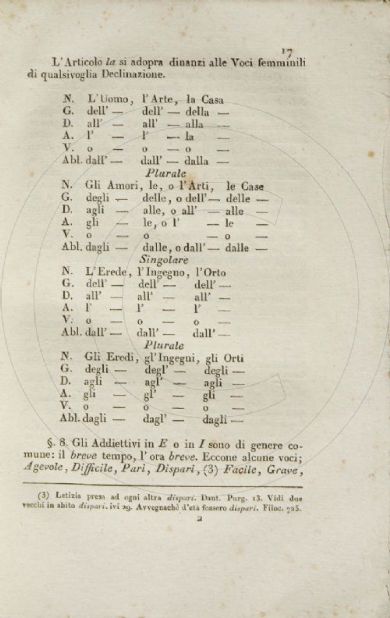 17
L'Articolo la si adopra dinanzi alle Voci femminili
di qualsivoglia Declinazione.
N. L'Uomo, l'Arte, la Casa
G. dell' — dell' — della —
D. all' — all' — alla —
A. l' — l' — la —
V. o — o — o —
Abl. dall' — dall' — dalla —
Plurale
N. Gli Amori, le, o l'Arti, le Case
G. degli — delle, o dell' — delle —
D. agli — alle, o all' — alle —
A. gli — le, o l' — le —
V. o — o — o —
Abl. dagli — dalle, o dall' — dalle —
Singolare
N. L'Erede, l'Ingegno, l'Orto
G. dell' — dell' — dell' —
D. all' — all' — all' —
A. l' — l' — l' —
V. o — o — o —
Abl. dall' — dall' — dall' —
Plurale
N. Gli Eredi, gl'Ingegni, gli Orti
G. degli — degl' — degli —
D. agli — agl' — agli —
A. gli — gl' — gli —
V. o — o — o —
Abl. dagli — dagl' — dagli —
§. 8. Gli Addiettivi in E o in I sono di genere co-
mune: il breve tempo, l'ora breve. Eccone alcune voci;
Agevole, Difficile, Pari, Dispari, (3) Facile, Grave,
(3) Letizia presa ad ogni altra dispari. Dant. Purg. 13. Vidi due
vecchi in abito dispari. ivi 29. Avvegnachè d'età fossero dispari. Filoc. 725.
2